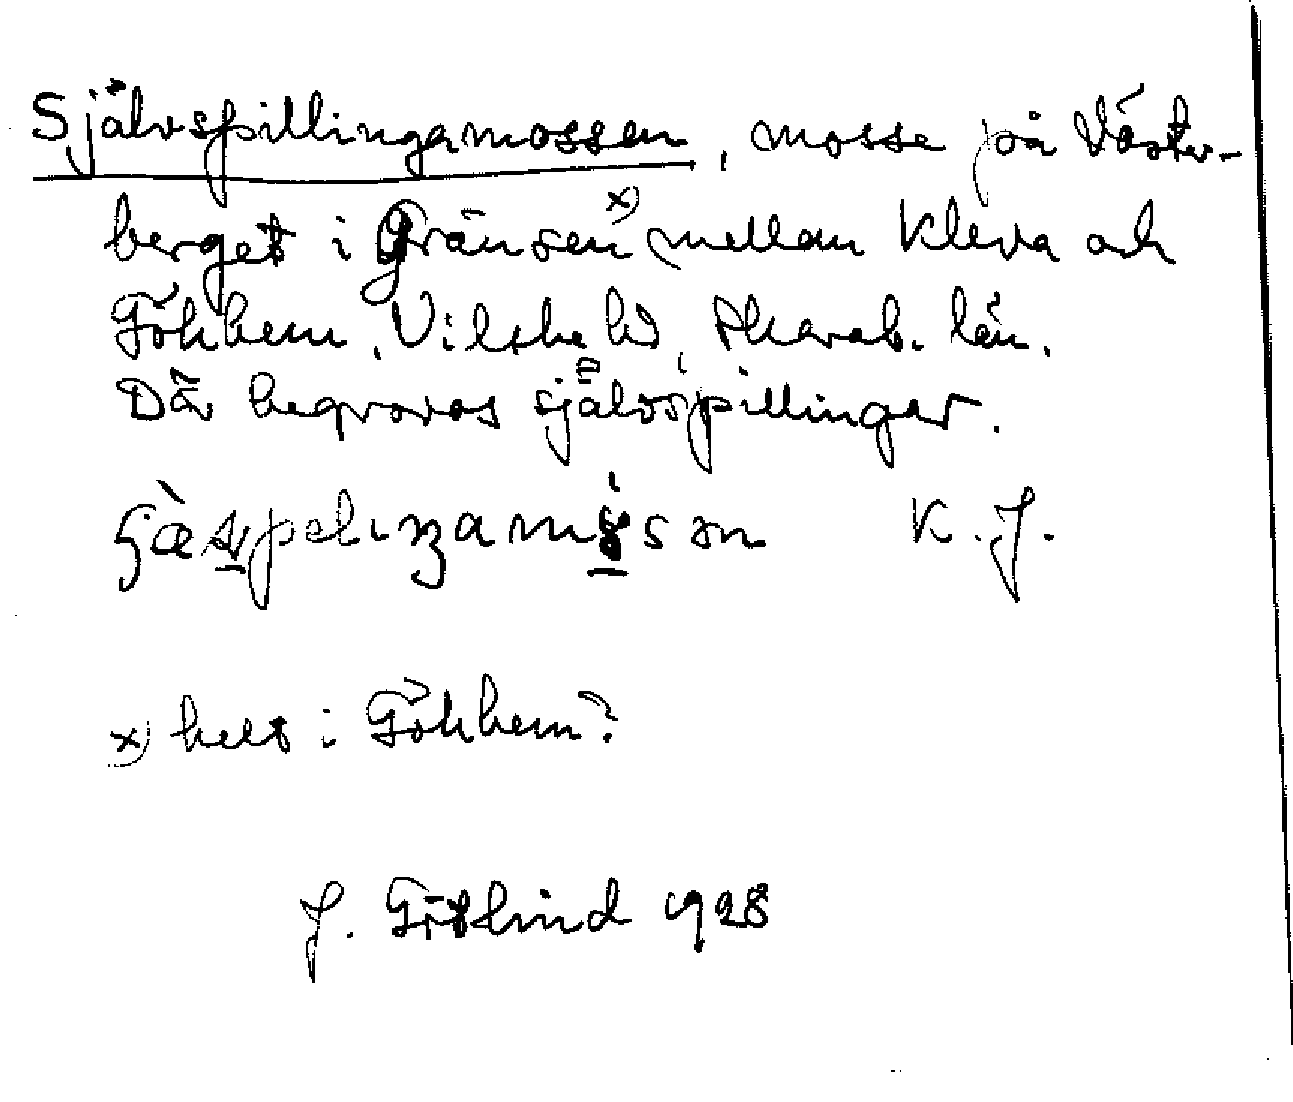 Självspillingamossen, mosse på Väster-
berget i Gränsen x) mellan Kleva och
Gökhem, Vilske hd, Skarab. län.
Där begrovos självspillingar.
K. J.
x) helt i Gökhem?
J. Götlind 1928